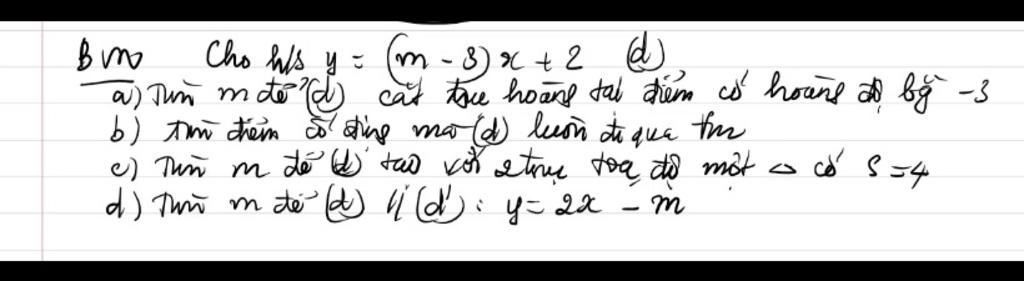 Bm Cho h/s y = (m - 3)x + 2 (d)
a) Tìm m để (d) cắt trục hoành tại điểm có hoành độ bg -3
b) tìm điểm cố định mà (d) luôn đi qua
c) Tìm m để (d) tạo với 2 trục toạ độ một △ có S = 4
d) Tìm m để (d) // (d'): y = 2x - m